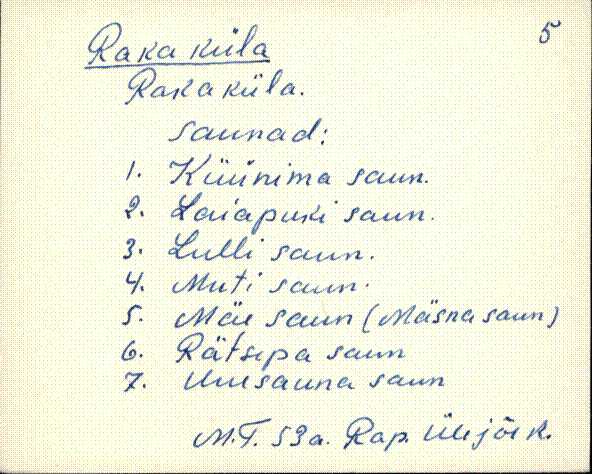 5
Raka küla
Raka küla.
Saunad:
1. Küünima saun.
2. Laiapuki saun.
3. Lulli saun.
4. Muti saun.
5. Mäe saun (Mäsna saun)
6. Rätsepa saun
7. Uuesauna saun
M.T. 53a. Rap. Ülejõe k.